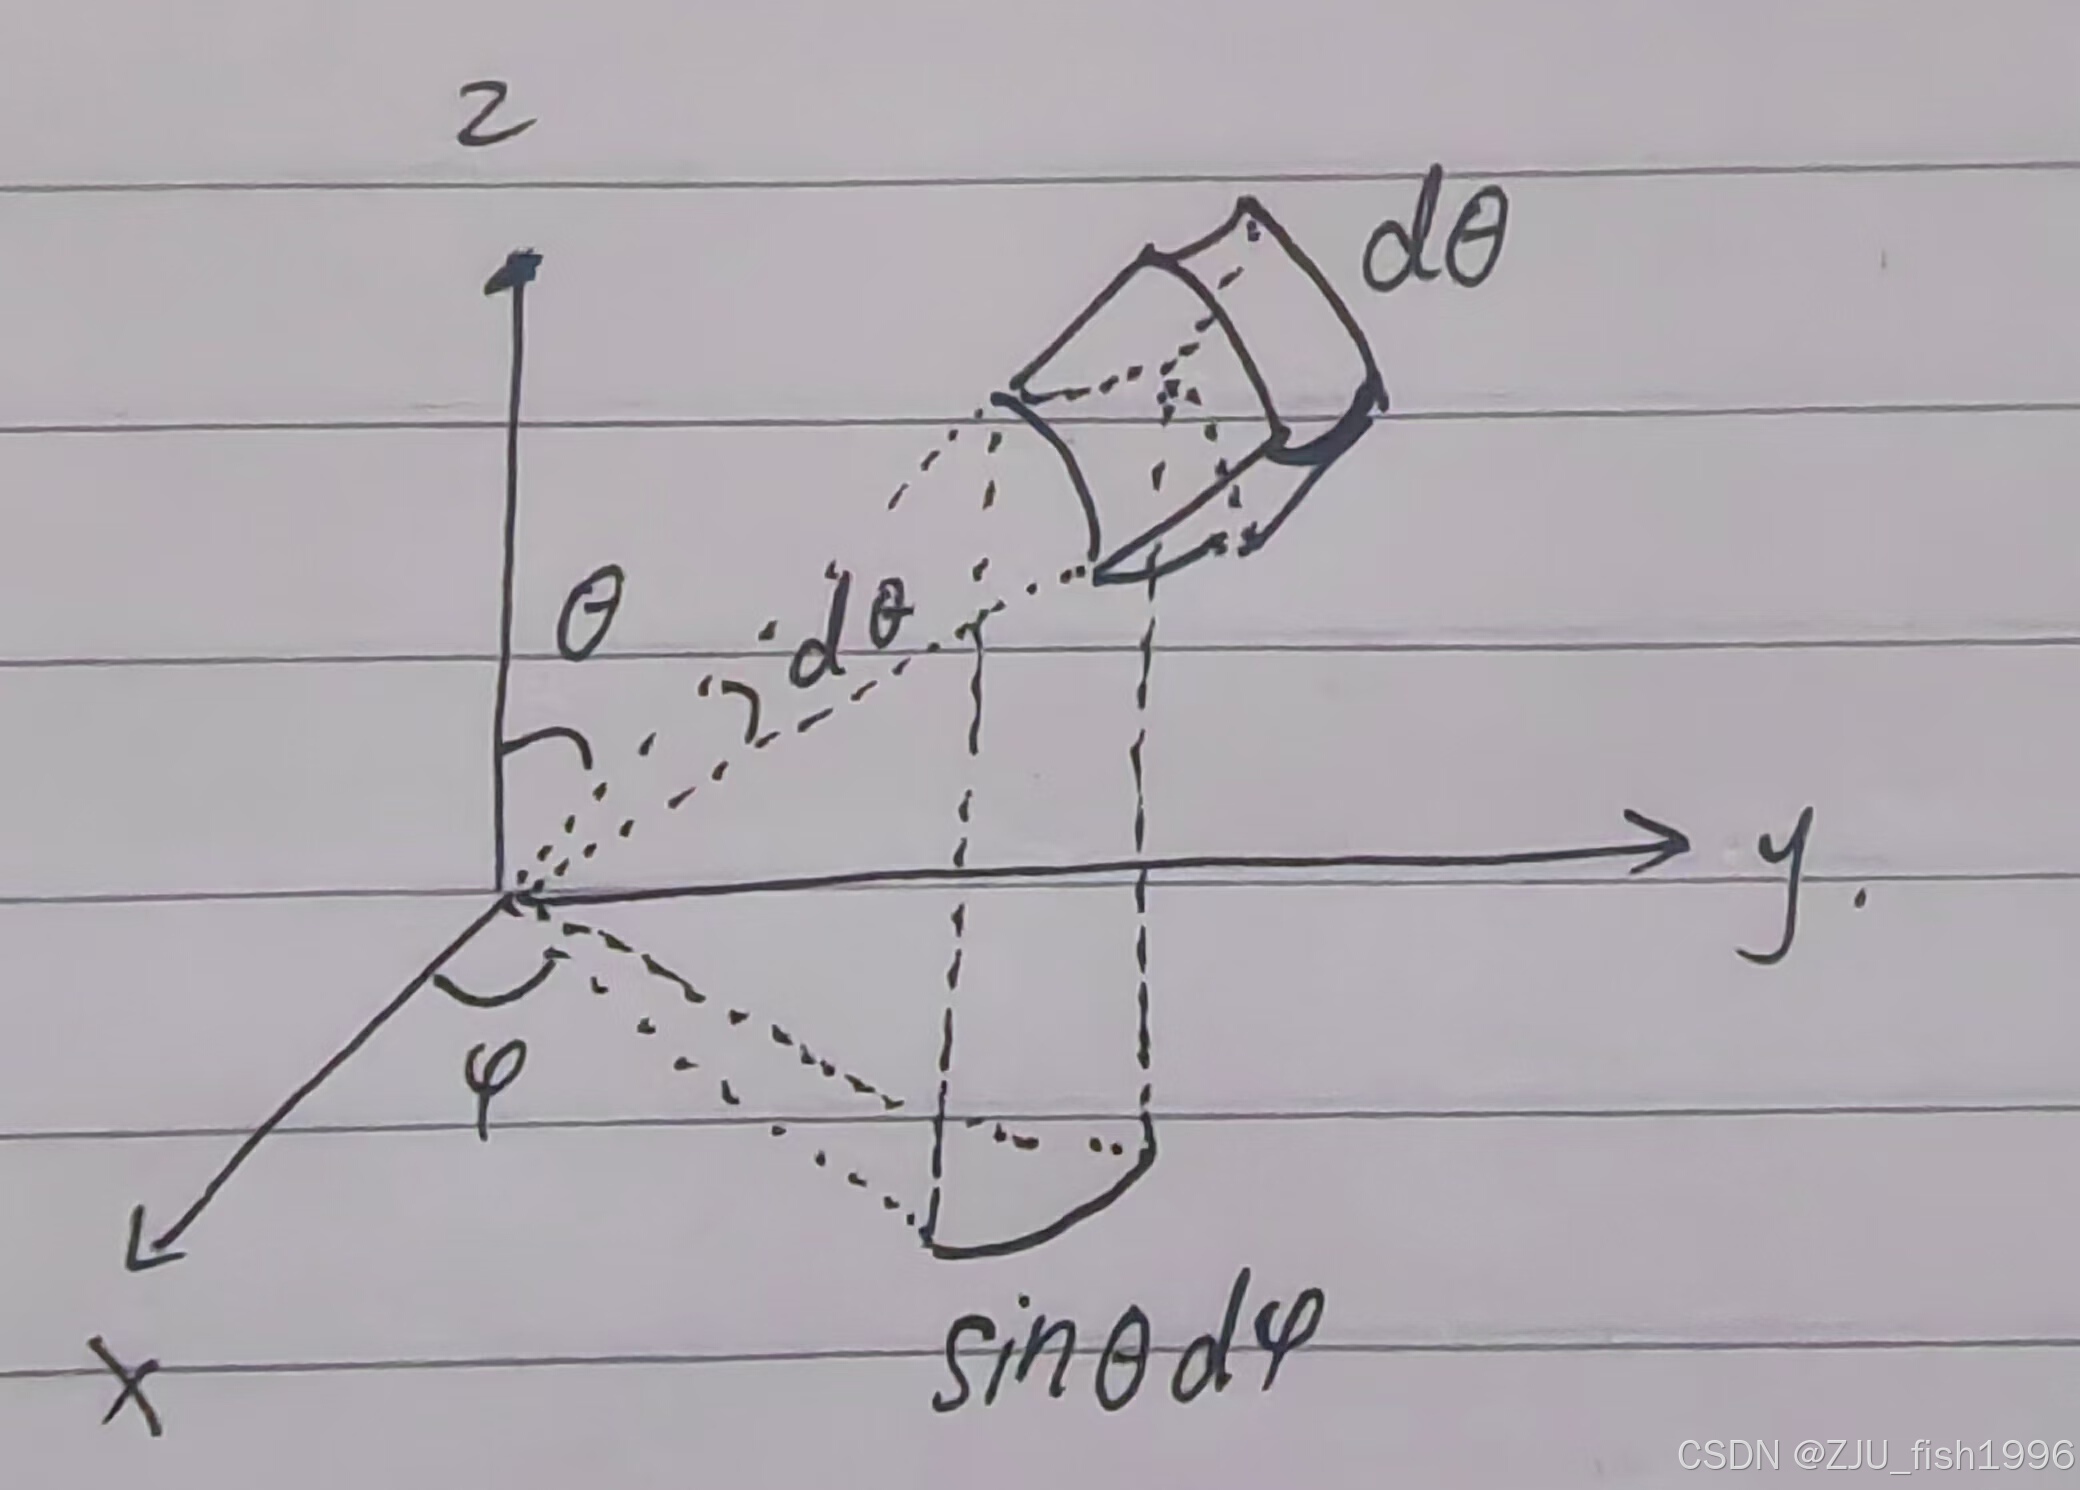 z
dθ
θ
dθ
y
φ
sinθdφ
x
CSDN @ZJU_fish1996